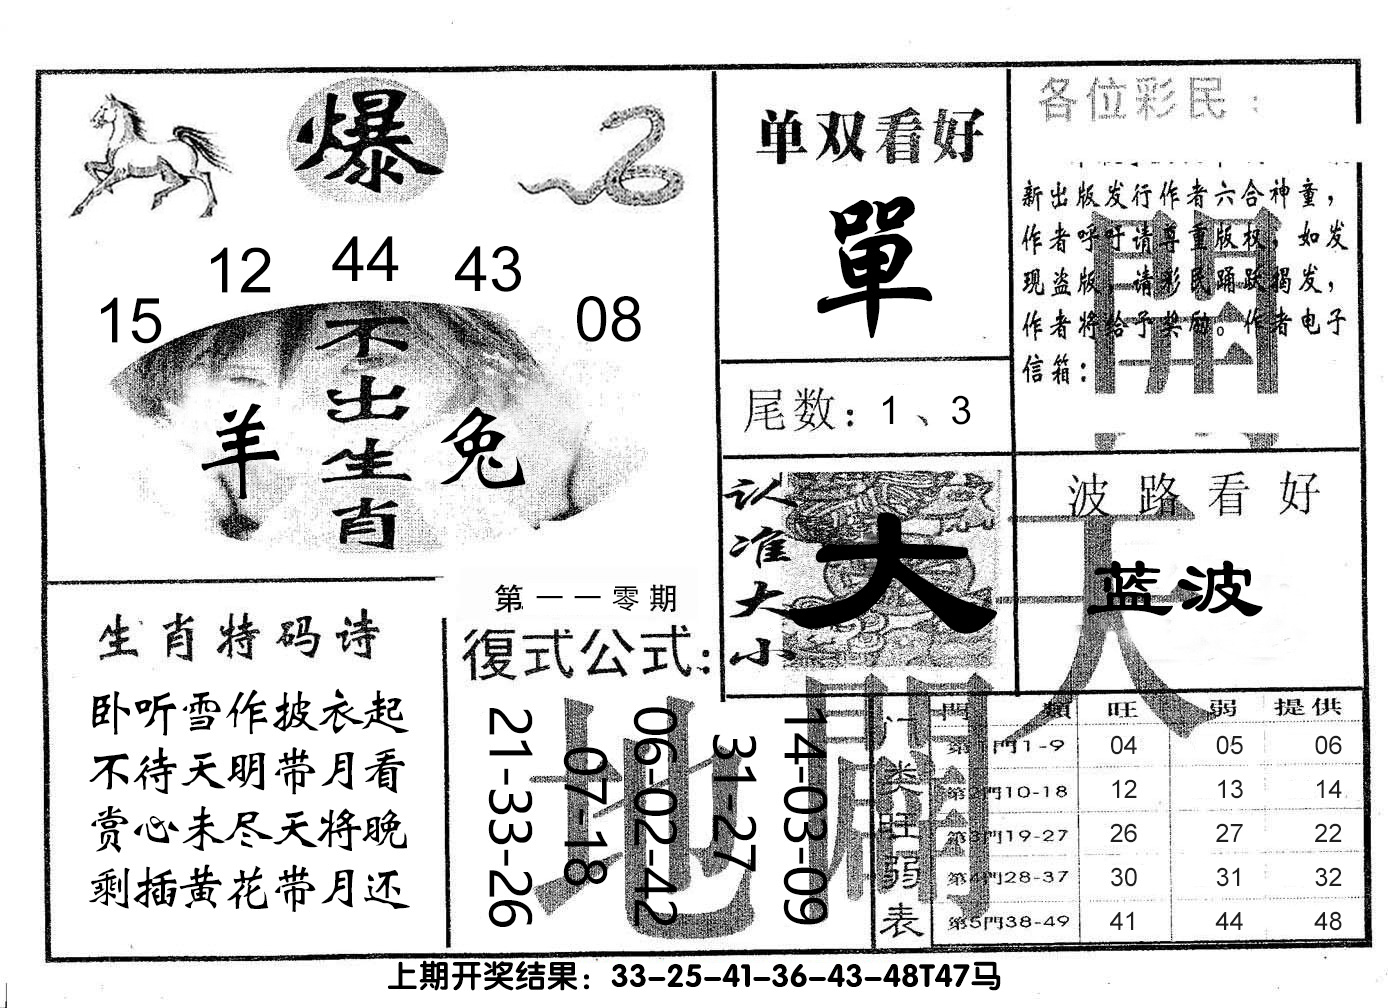 爆
15
12
44
43
08
不出生肖
羊
兔
单双看好
單
尾数：1、3
认准大小
大
各位彩民：
新出版发行作者六合神童，
作者呼吁请尊重版权，如发
现盗版，请彩民踊跃揭发，
作者将给予奖励。作者电子
信箱：
波路看好
蓝波
生肖特码诗
卧听雪作披衣起
不待天明带月看
赏心未尽天将晚
剩插黄花带月还
第一一零期
復式公式：
21-33-26
07-18
06-02-42
31-27
14-03-09
天
地
開
開
门类旺弱表
門類 旺 弱 提供
第1門1-9 04 05 06
第2門10-18 12 13 14
第3門19-27 26 27 22
第4門28-37 30 31 32
第5門38-49 41 44 48
上期开奖结果：33-25-41-36-43-48T47马